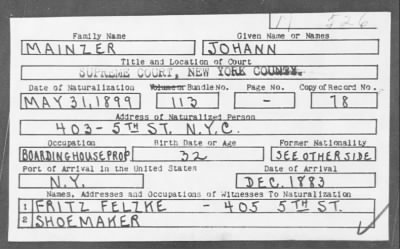 M 526
Family Name Given Name or Names
MAINZER JOHANN
Title and Location of Court
SUPREME COURT, NEW YORK COUNTY.
Date of Naturalization Volume or Bundle No. Page No. Copy of Record No.
MAY 31, 1899 113 - 78
Address of Naturalized Person
403 - 5TH ST. N.Y.C.
Occupation Birth Date or Age Former Nationality
BOARDINGHOUSE PROP 32 SEE OTHER SIDE
Port of Arrival in the United States Date of Arrival
N.Y. DEC. 1883
Names, Addresses and Occupations of Witnesses To Naturalization
1 FRITZ FELZKE - 405 5TH ST.
2 SHOEMAKER